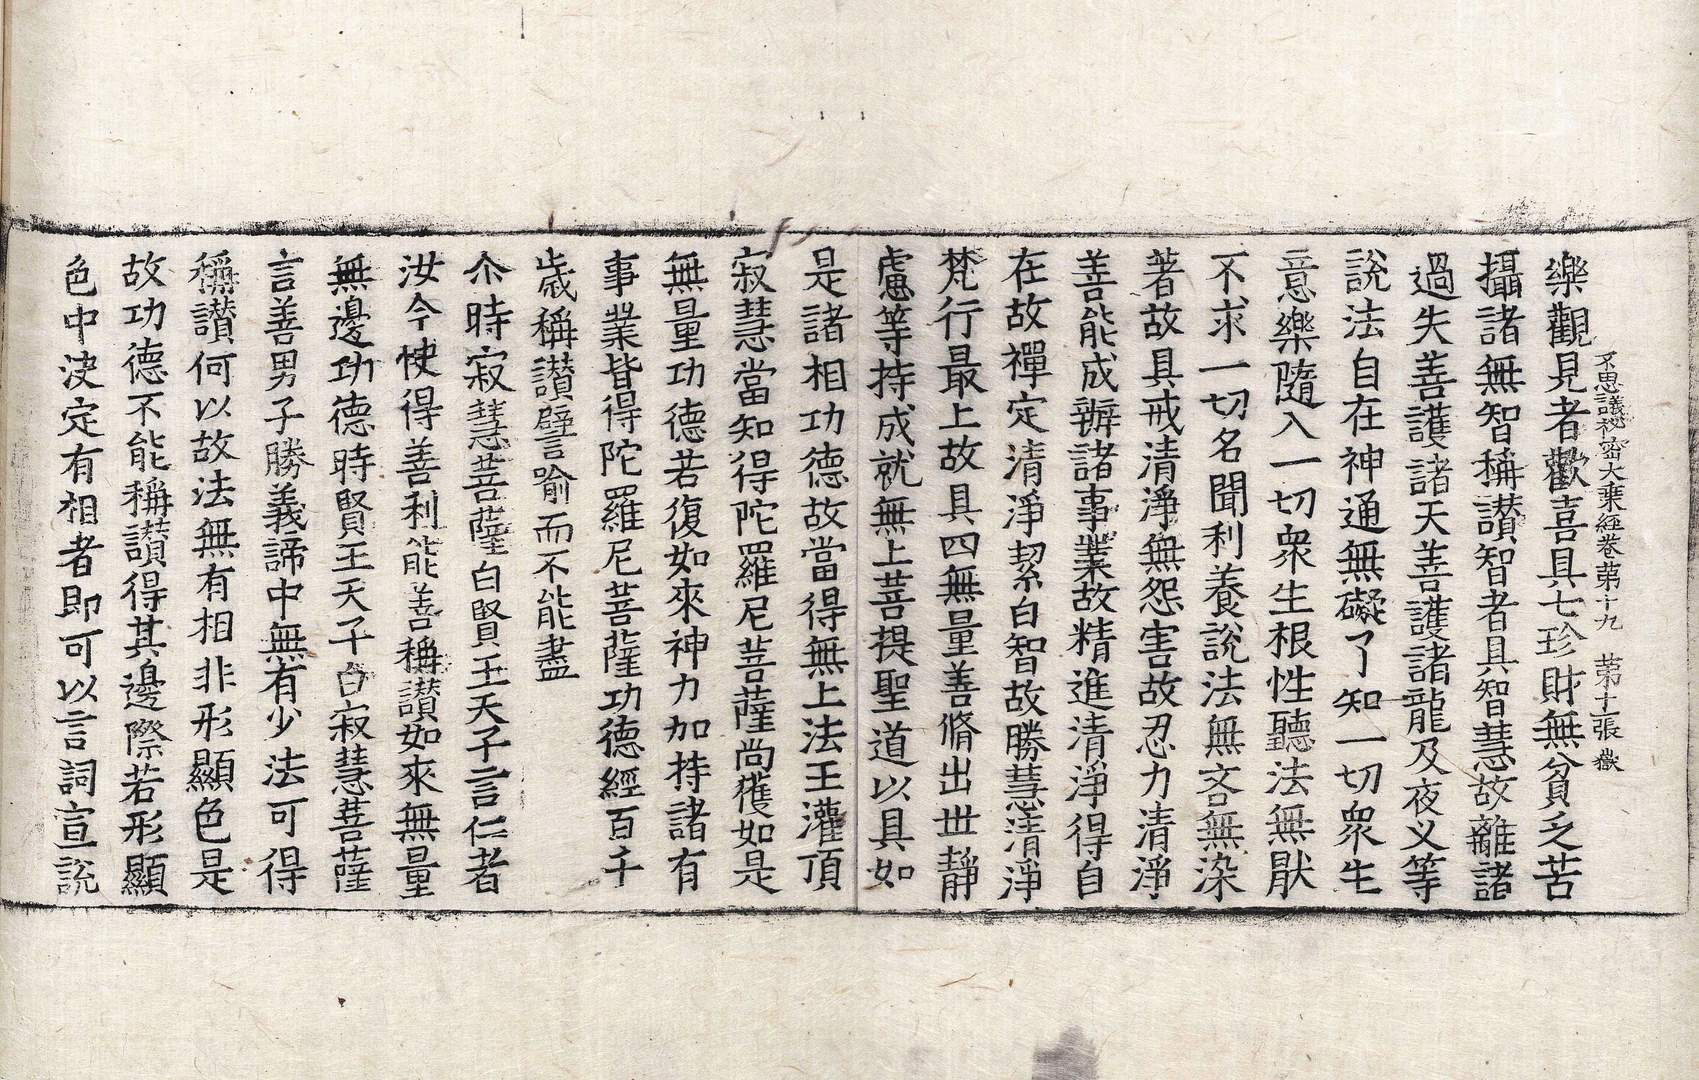 不思議秘密大乘經卷第十九　第十張　歡
樂觀見者歡喜具七珍財無貧乏苦
攝諸無智稱讃智者具智慧故離諸
過失善護諸天善護諸龍及夜叉等
說法自在神通無礙了知一切衆生
意樂隨入一切衆生根性聽法無猒
不求一切名聞利養說法無吝無染
著故具戒清淨無怨害故忍力清淨
善能成辦諸事業故精進清淨得自
在故禪定清淨絜白智故勝慧清淨
梵行最上故具四無量善脩出世靜
慮等持成就無上菩提聖道以具如
是諸相功德故當得無上法王灌頂
寂慧當知得陀羅尼菩薩尚獲如是
無量功德若復如來神力加持諸有
事業皆得陀羅尼菩薩功德經百千
歲稱讃譬喻而不能盡
尒時寂慧菩薩白賢王天子言仁者
汝今快得善利能善稱讃如來無量
無邊功德時賢王天子白寂慧菩薩
言善男子勝義諦中無有少法可得
稱讃何以故法無有相非形顯色是
故功德不能稱讃得其邊際若形顯
色中決定有相者即可以言詞宣說